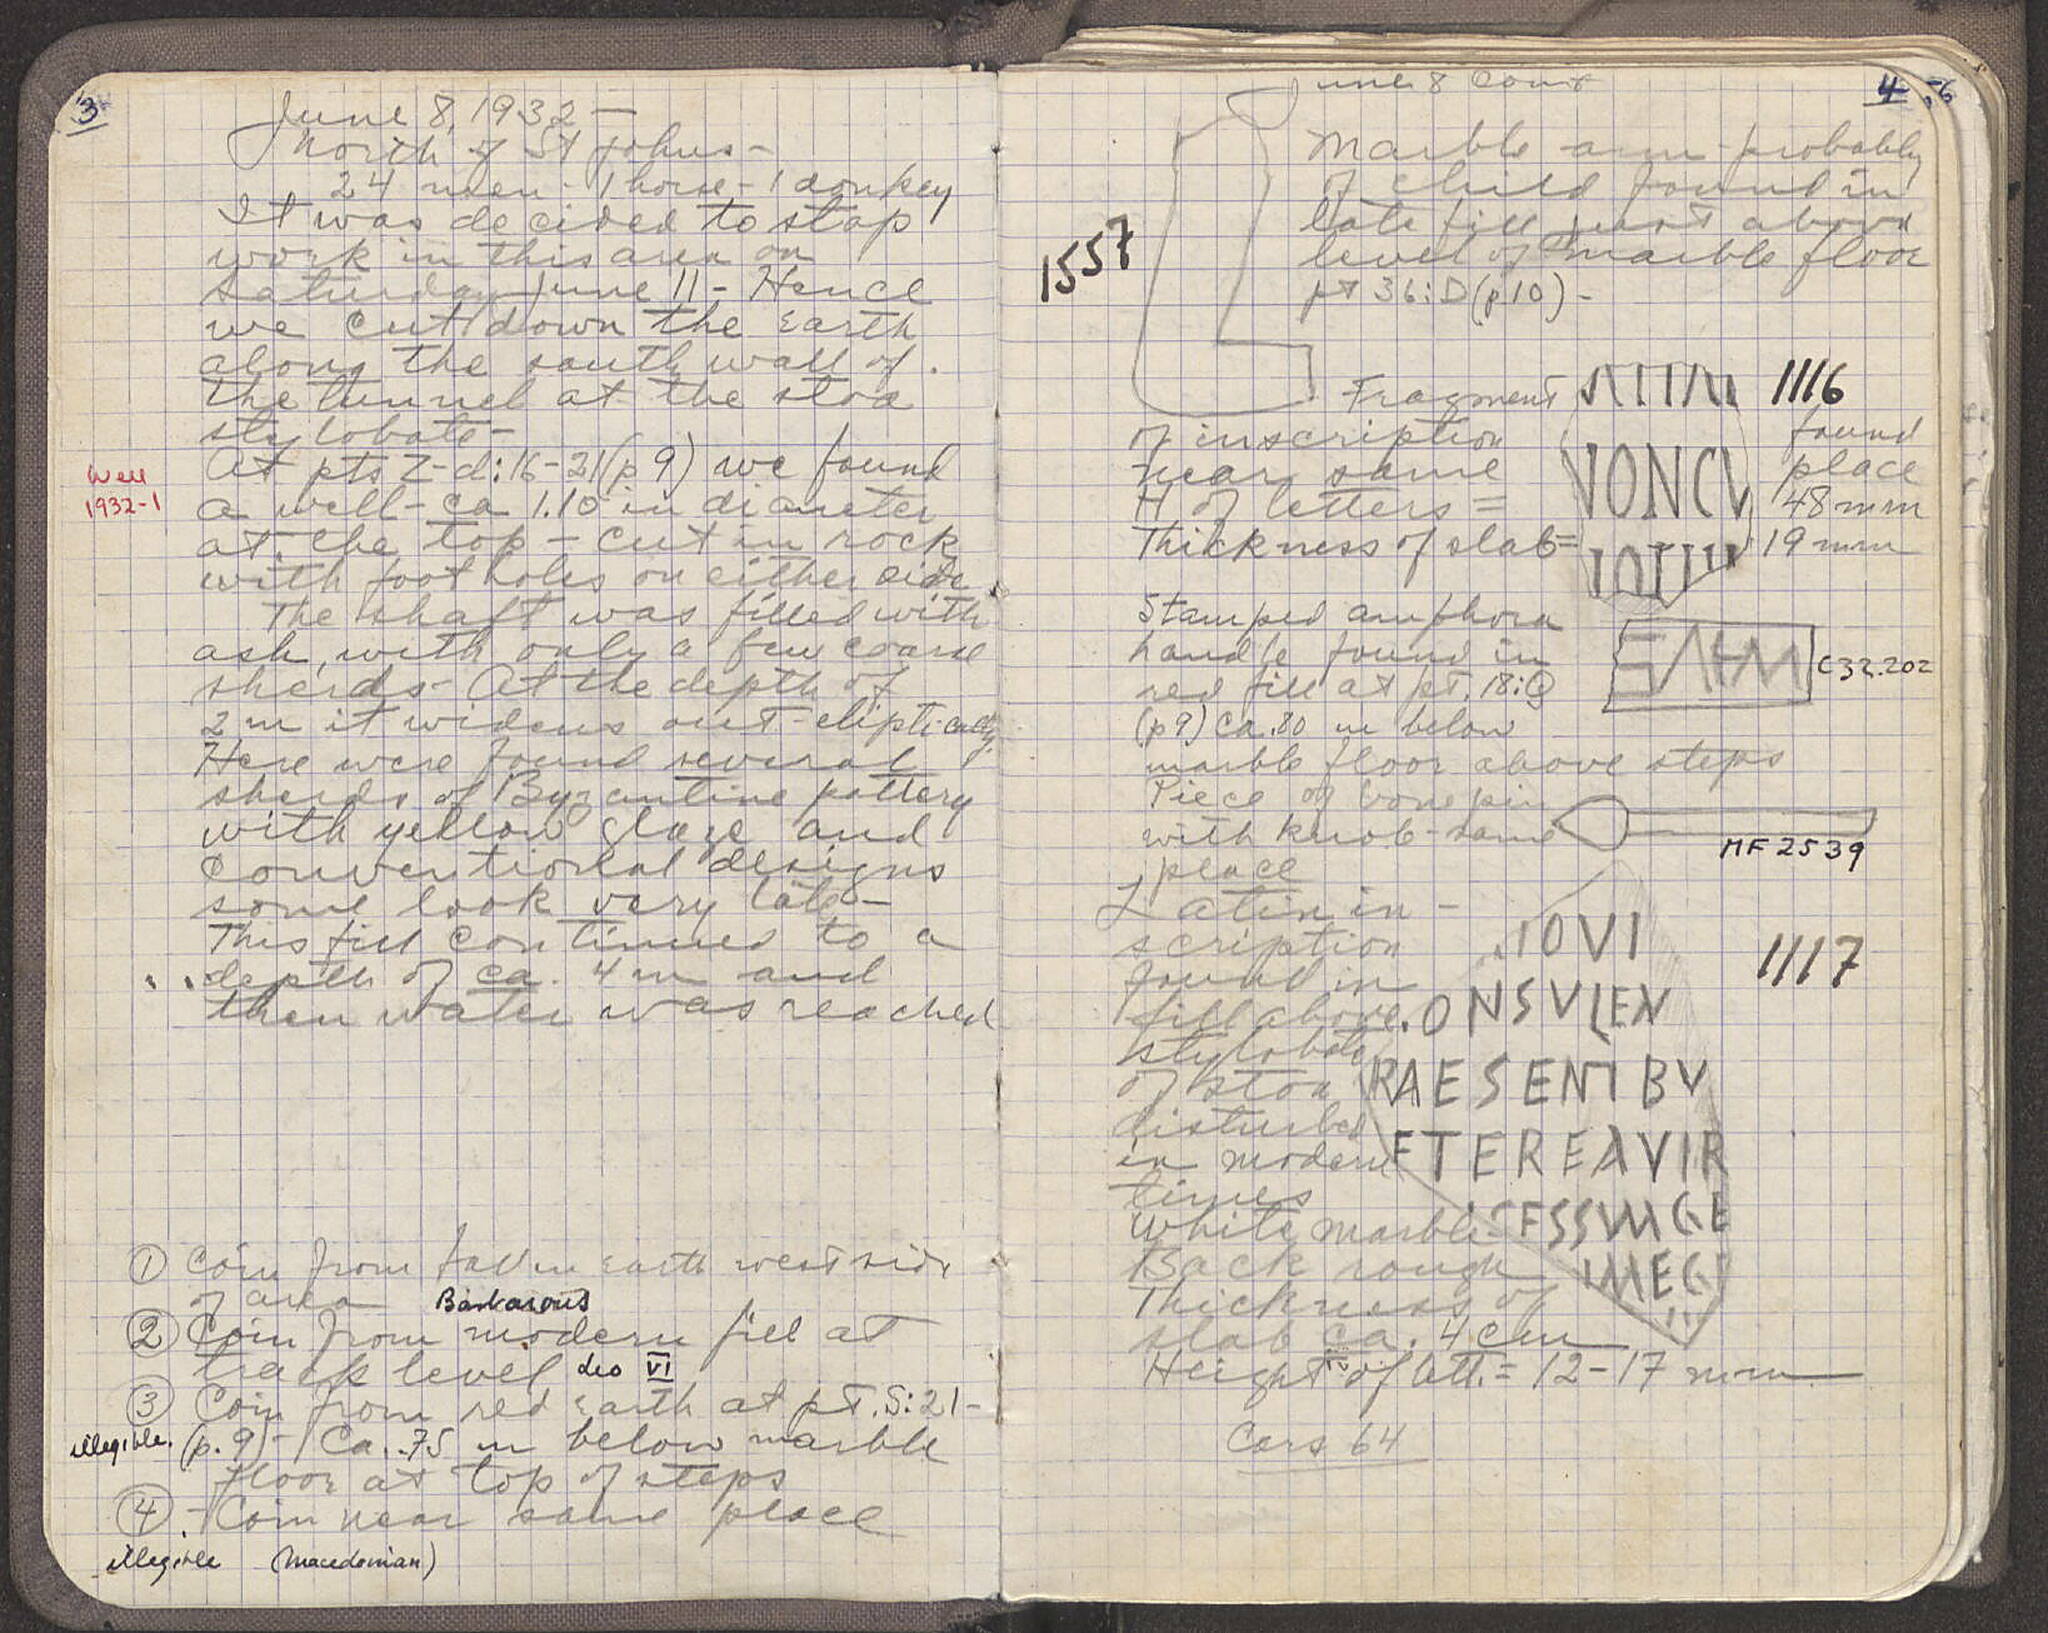 3
June 8, 1932 —
North of St Johns -
24 men - 1 horse - 1 donkey
It was decided to stop
work in this area on
Saturday June 11 - Hence
we cut down the earth
along the south wall of
the tunnel at the stoa
stylobate -
Well
1932-1
At pts Z-d:16-21 (p 9) we found
a well - ca 1.10 in diameter
at the top - cut in rock
with foot holes on either side.
The shaft was filled with
ash, with only a few coarse
sherds - At the depth of
2 m it widens out - eliptically.
Here were found several
sherds of Byzantine pottery
with yellow glaze and
conventional designs
some look very late -
This fill continued to a
depth of ca. 4 m and
then water was reached
① Coin from fallen earth west side
of area
Barbarous
② Coin from modern fill at
track level Leo VI
③ Coin from red earth at pt. S:21 -
illegible. (p. 9) - Ca .75 m below marble
floor at top of steps
④ - Coin near same place
illegible (Macedonian)
June 8 Cont
4
6
1557
Marble arm - probably
of child found in
late fill just above
level of marble floor
pt 36:D (p 10) -
Fragment
1116
of inscription found
near same place
H of letters = 48 mm
Thickness of slab = 19 mm
VONCV
Stamped amphora
handle found in
red fill at pt. 18:Q
C32.202
(p 9) ca .80 m below
marble floor above steps
Piece of bone pin
with knob - same
place
MF 2539
Latin in -
scription
found in
fill above
stylobate
of stoa
disturbed
in modern
times
1117
IOVI
.ONSVLEN
RAESENTBV
ETEREAVIR
ESSVMGE
IMEG
White marble
Back rough
Thickness of
slab ca. 4 cm
Height of lett. = 12-17 mm
Cars 64